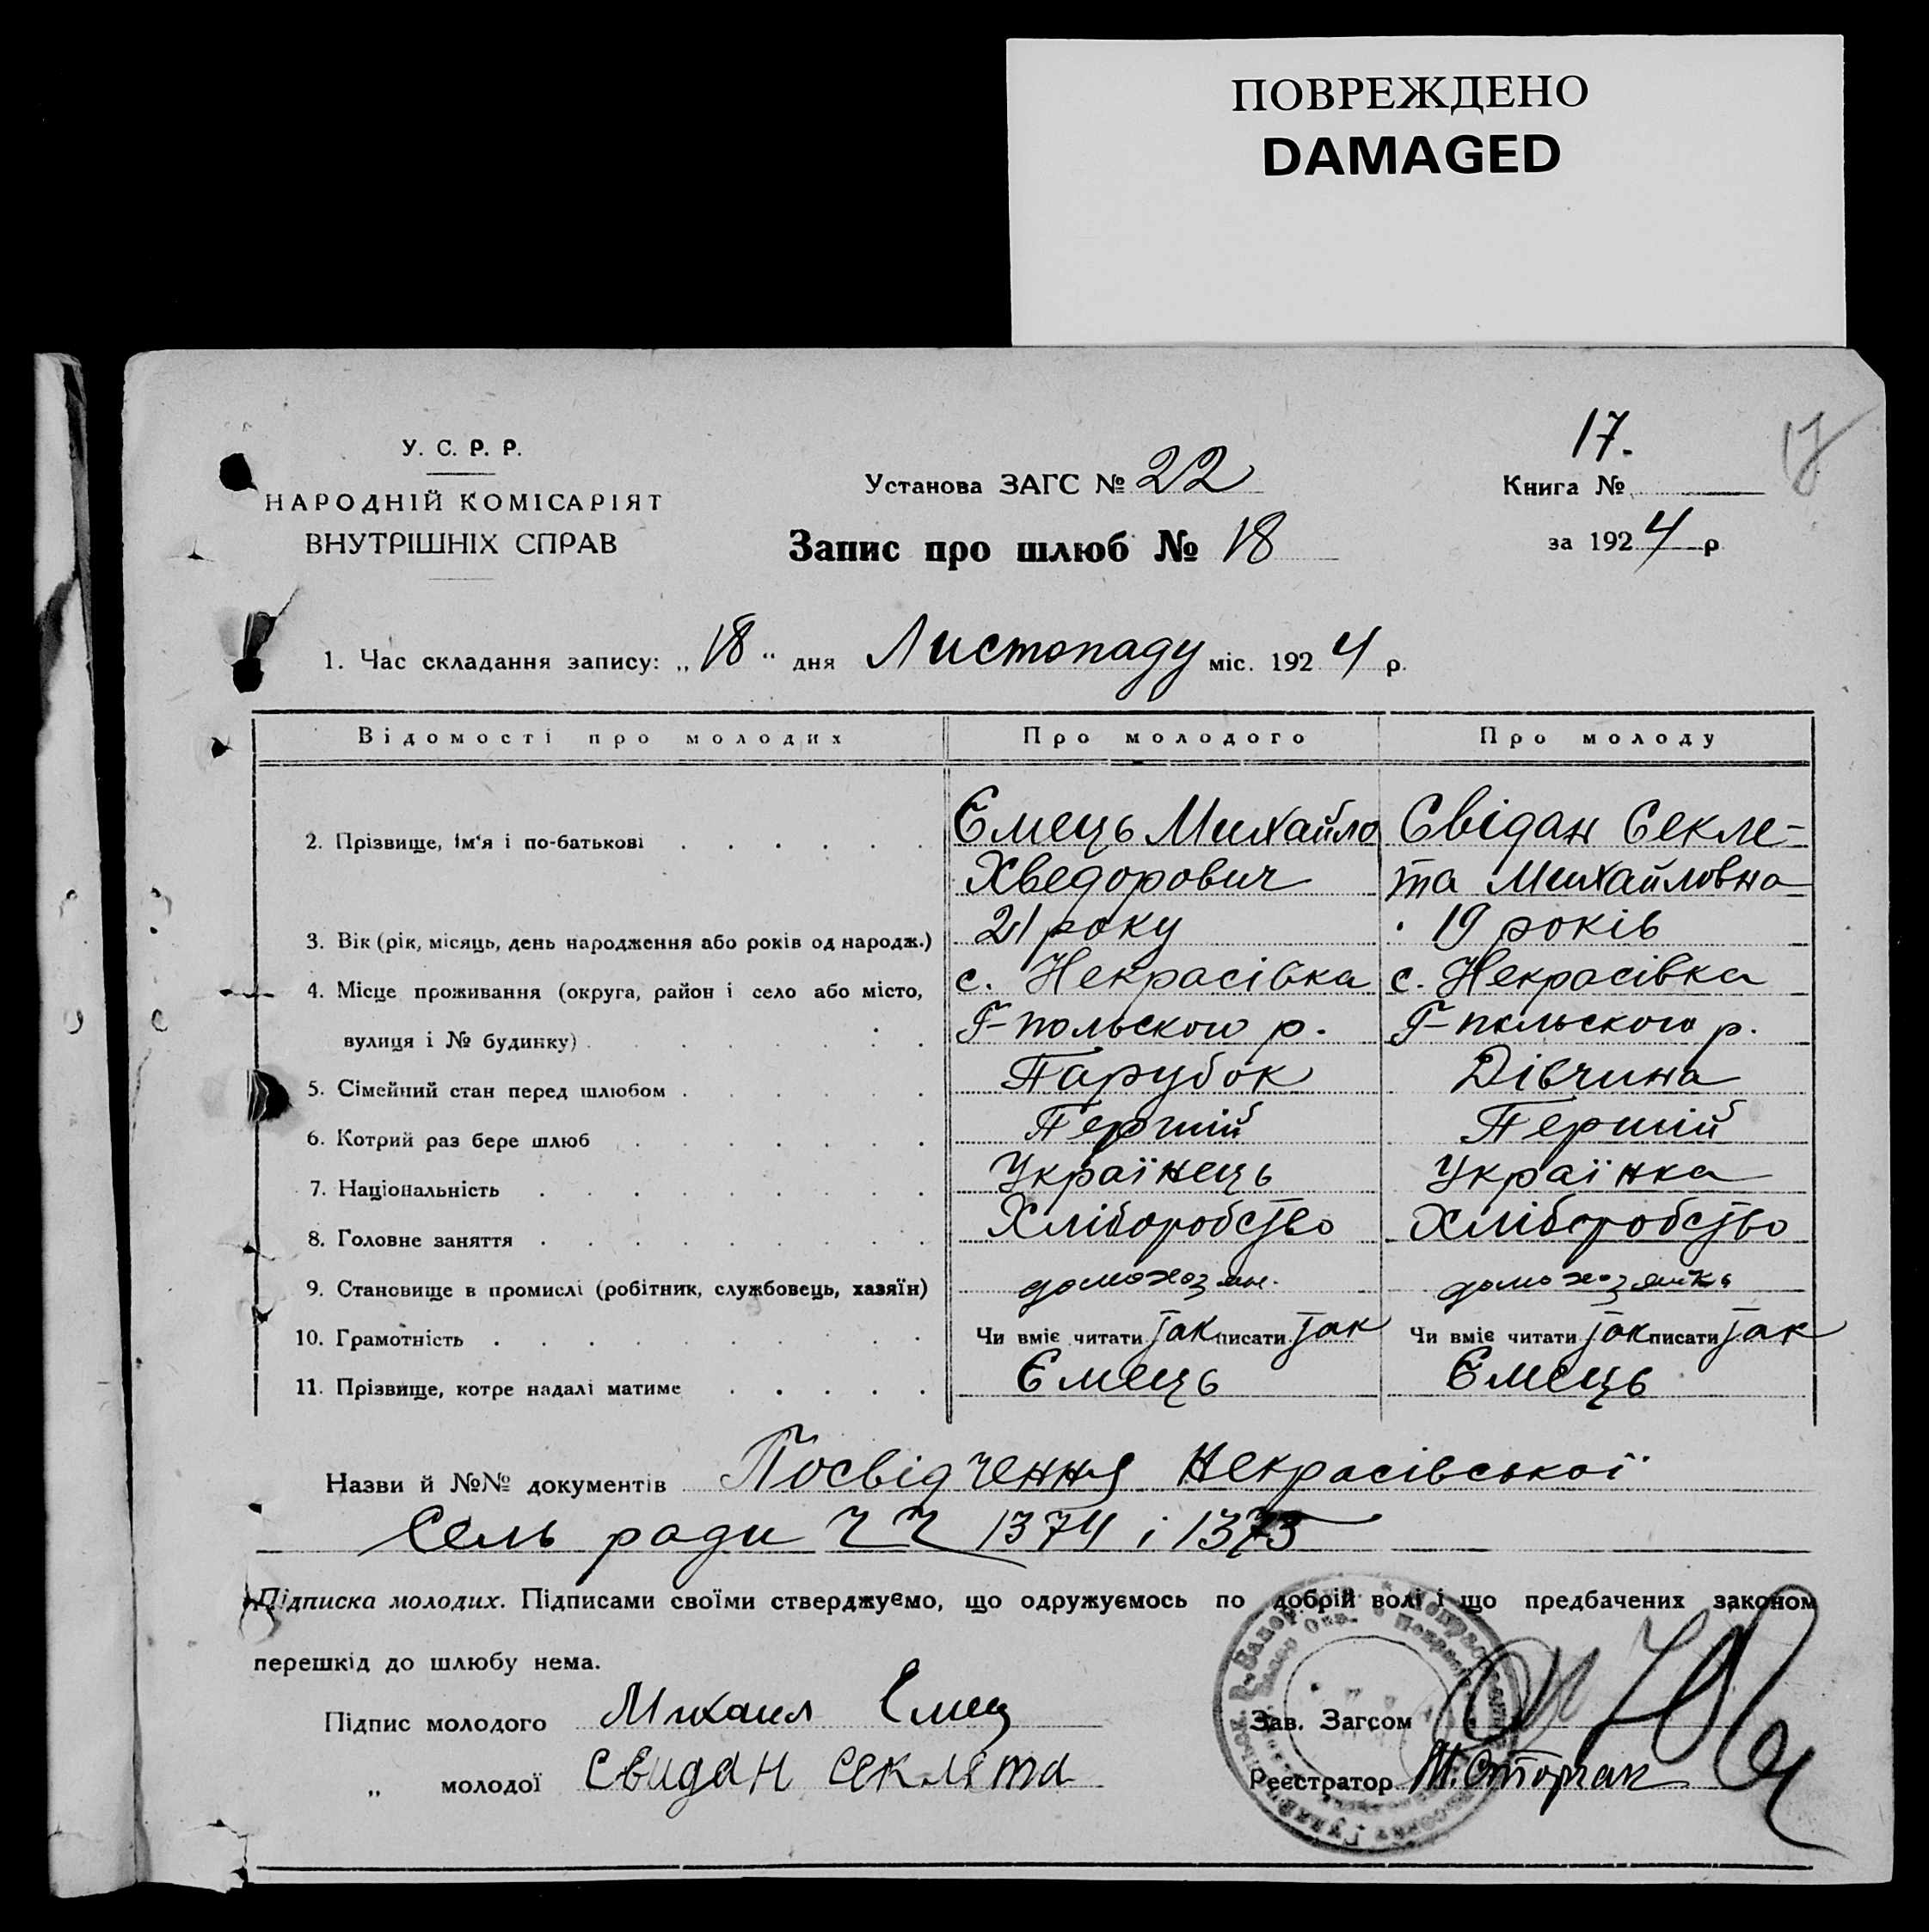 ПОВРЕЖДЕНО
DAMAGED
У. С. Р. Р.
НАРОДНІЙ КОМІСАРІЯТ
ВНУТРІШНІХ СПРАВ
Установа ЗАГС № 22
Запис про шлюб № 18
17.
17
Книга №
за 1924 р
1. Час складання запису: „18“ дня Листопаду міс. 1924 р.
Відомості про молодих Про молодого Про молоду
2. Прізвище, ім'я і по-батькові Ємець Михайло Свідан Секле-
Хведорович та Михайловна
3. Вік (рік, місяць, день народження або років од народж.) 21 року 19 років
4. Місце проживання (округа, район і село або місто, с. Некрасівка с. Некрасівка
вулиця і № будинку) Г-польского р. Г-польского р.
5. Сімейний стан перед шлюбом Парубок Дівчина
6. Котрий раз бере шлюб Перший Перший
7. Національність Українець Українка
8. Головне заняття Хліборобство Хліборобство
9. Становище в промислі (робітник, службовець, хазяїн) домохозяин. домохозяйка
10. Грамотність Чи вміє читати так писати так Чи вміє читати так писати так
11. Прізвище, котре надалі матиме Ємець Ємець
Назви й №№ документів Посвідчення Некрасівської
Сель ради 1374 і 1375
Підписка молодих. Підписами своїми стверджуємо, що одружуємось по добрій волі і що предбачених законом
перешкід до шлюбу нема.
Підпис молодого Михаил Емец
Зав. Загсом
„ молодої Свидан Секлета
Реєстратор